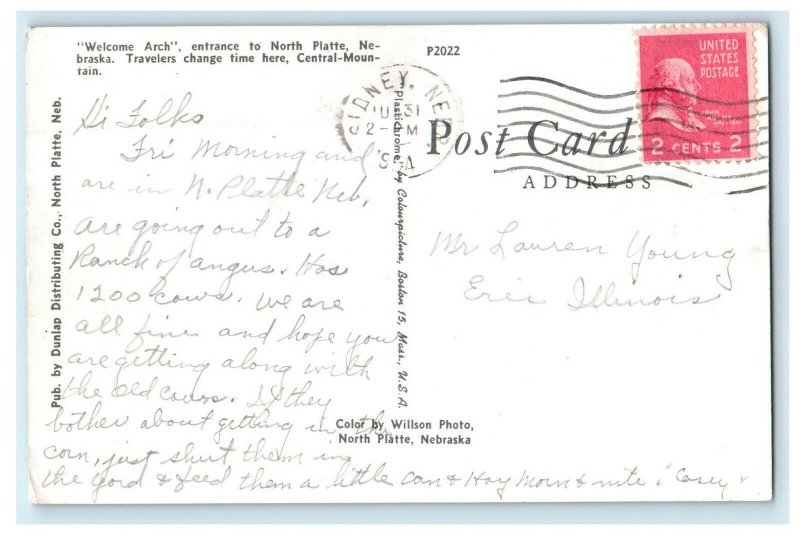 "Welcome Arch", entrance to North Platte, Ne-
braska. Travelers change time here, Central-Moun-
tain.
P2022
SIDNEY, NEB
31
2- M
UNITED
STATES
POSTAGE
2 CENTS 2
Post Card
ADDRESS
Pub. by Dunlap Distributing Co., North Platte, Neb.
"Plastichrome" by Colourpicture, Boston 15, Mass., U.S.A.
Hi Folks
Fri Morning and
are in N. Platte Neb,
are going out to a
Ranch of angus. Has
1200 cows. We are
all fine and hope you
are getting along with
the old cows. If they
bother about getting in the
corn, just shut them in
the yard & feed them a little corn & Hay morn & nite "Casey"
Mr Lauren Young
Erie Illinois
Color by Willson Photo,
North Platte, Nebraska